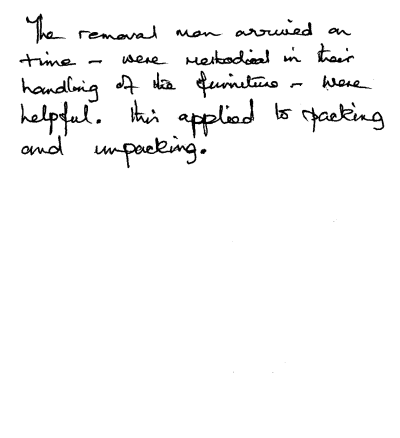 The removal men arrived on
time - were methodical in their
handling of the furniture - were
helpful. This applied to packing
and unpacking.